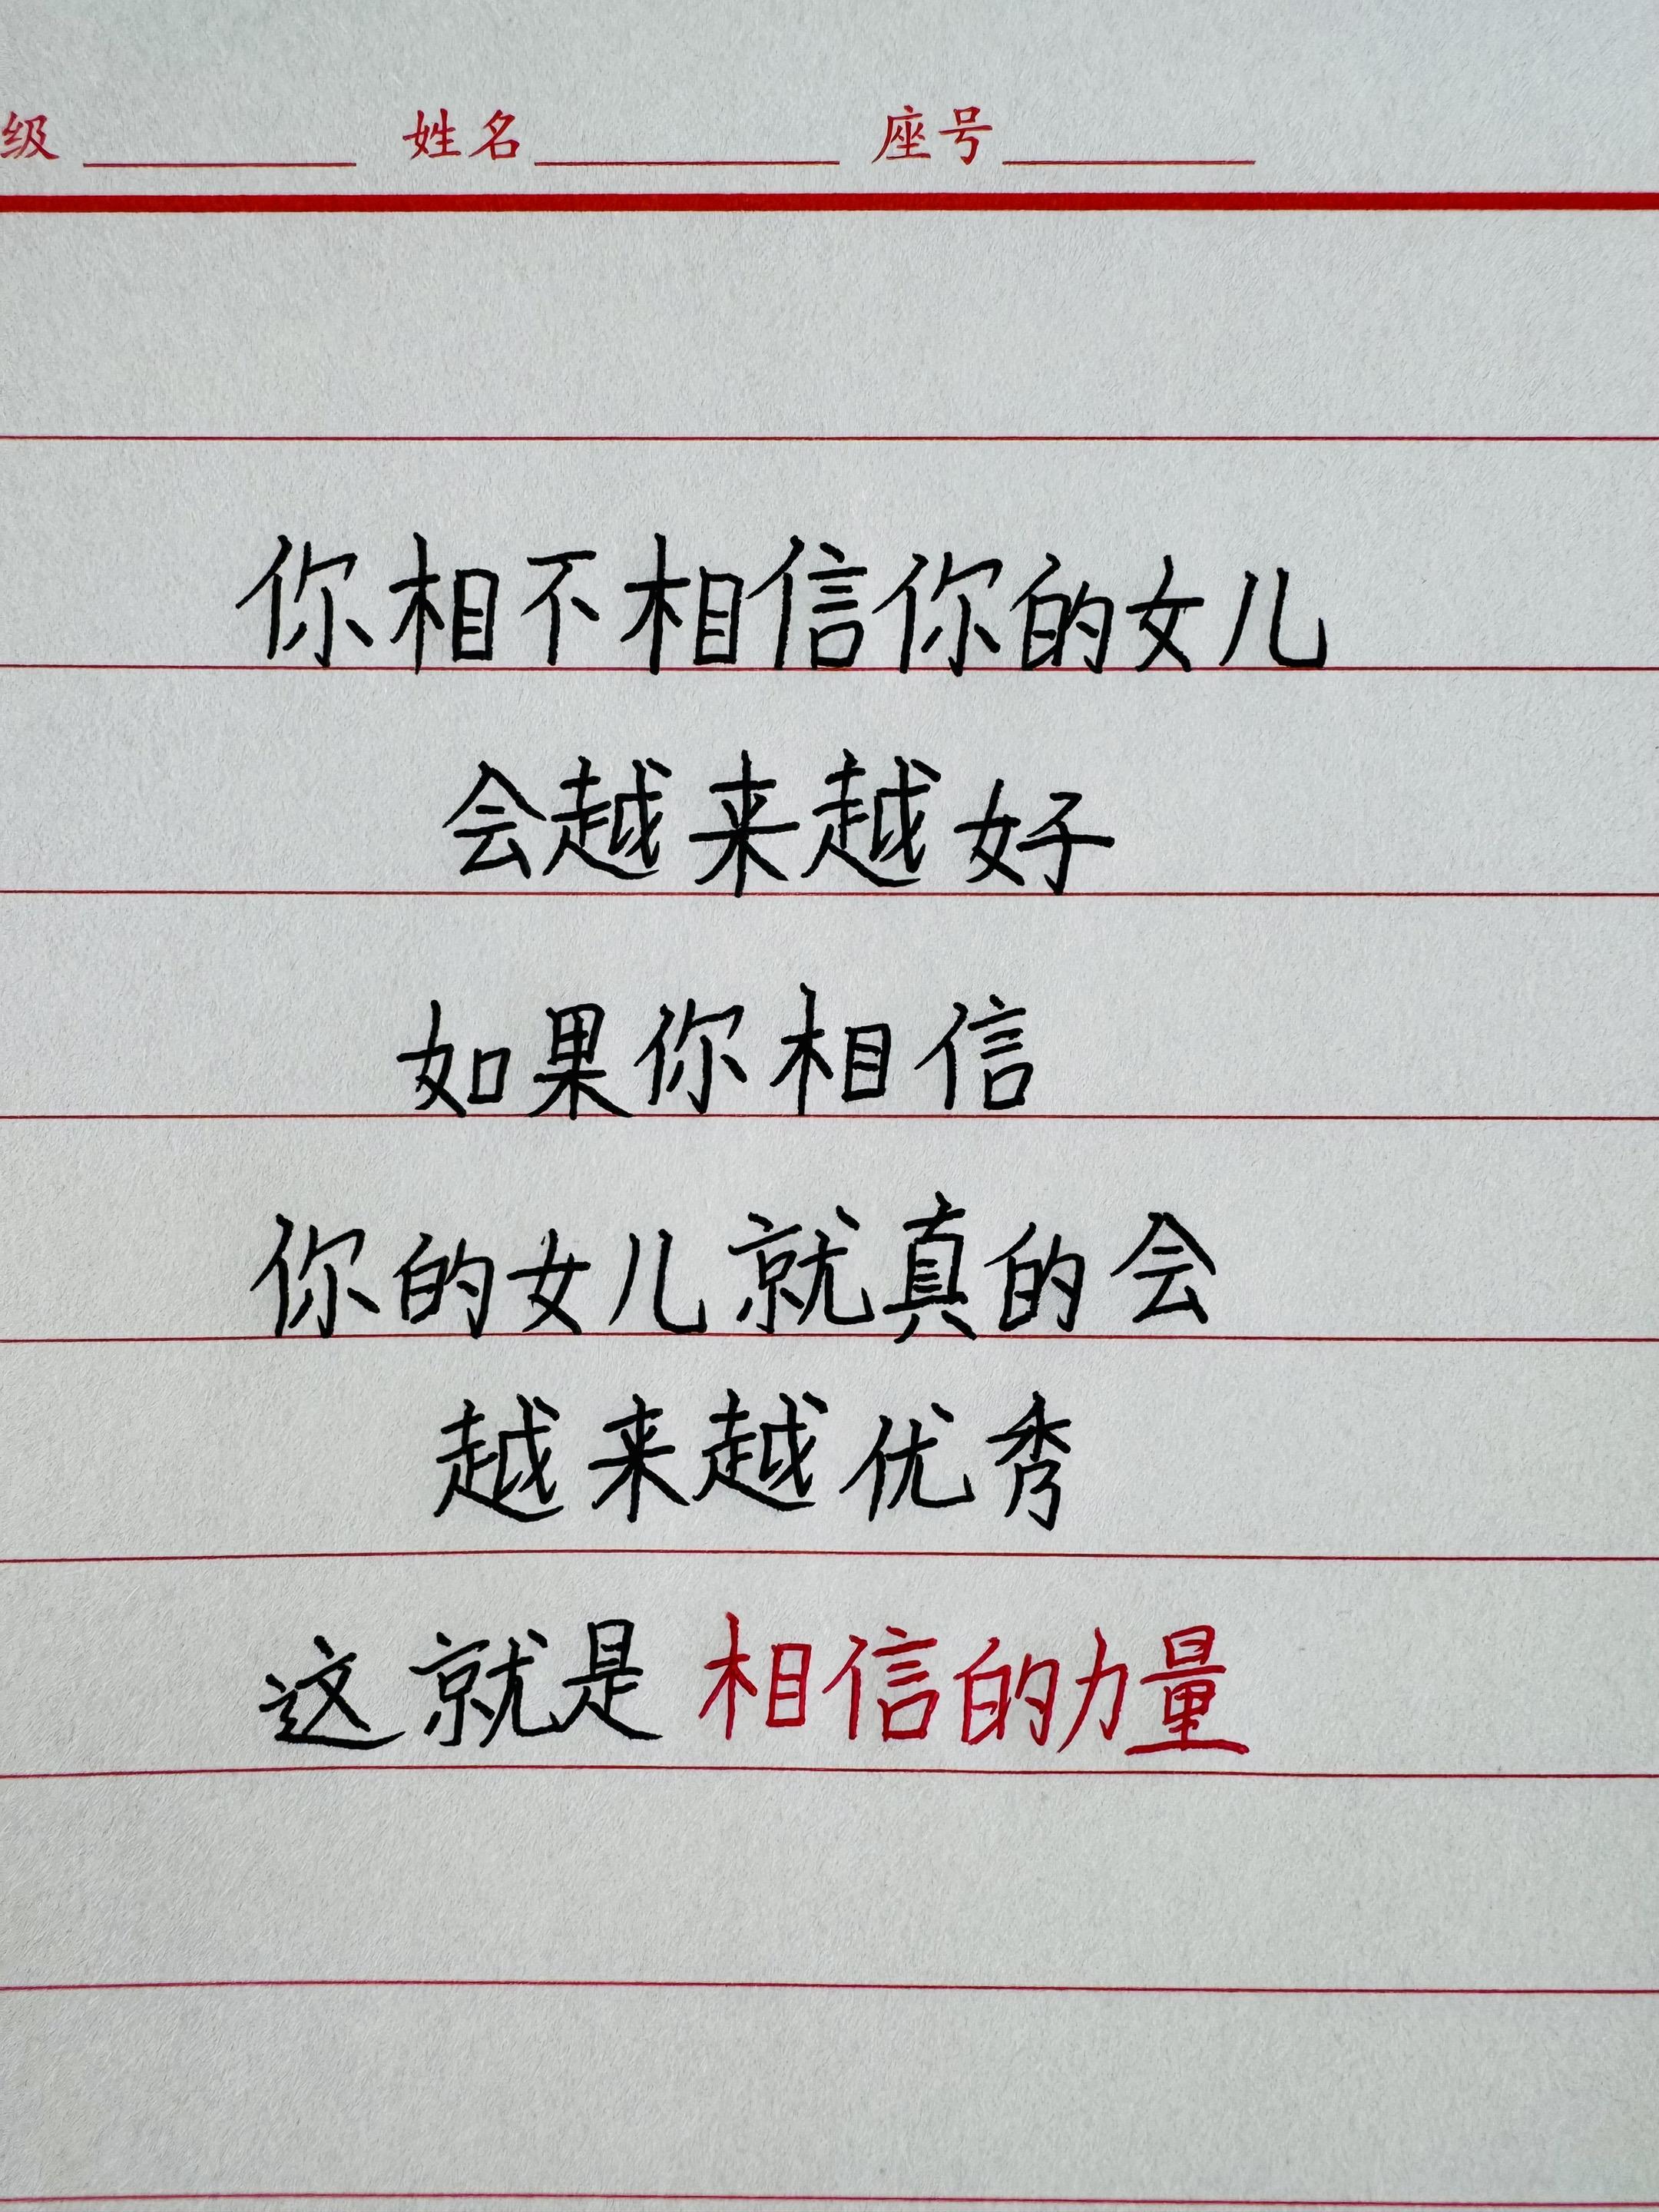 级 姓名 座号
你相不相信你的女儿
会越来越好
如果你相信
你的女儿就真的会
越来越优秀
这就是相信的力量